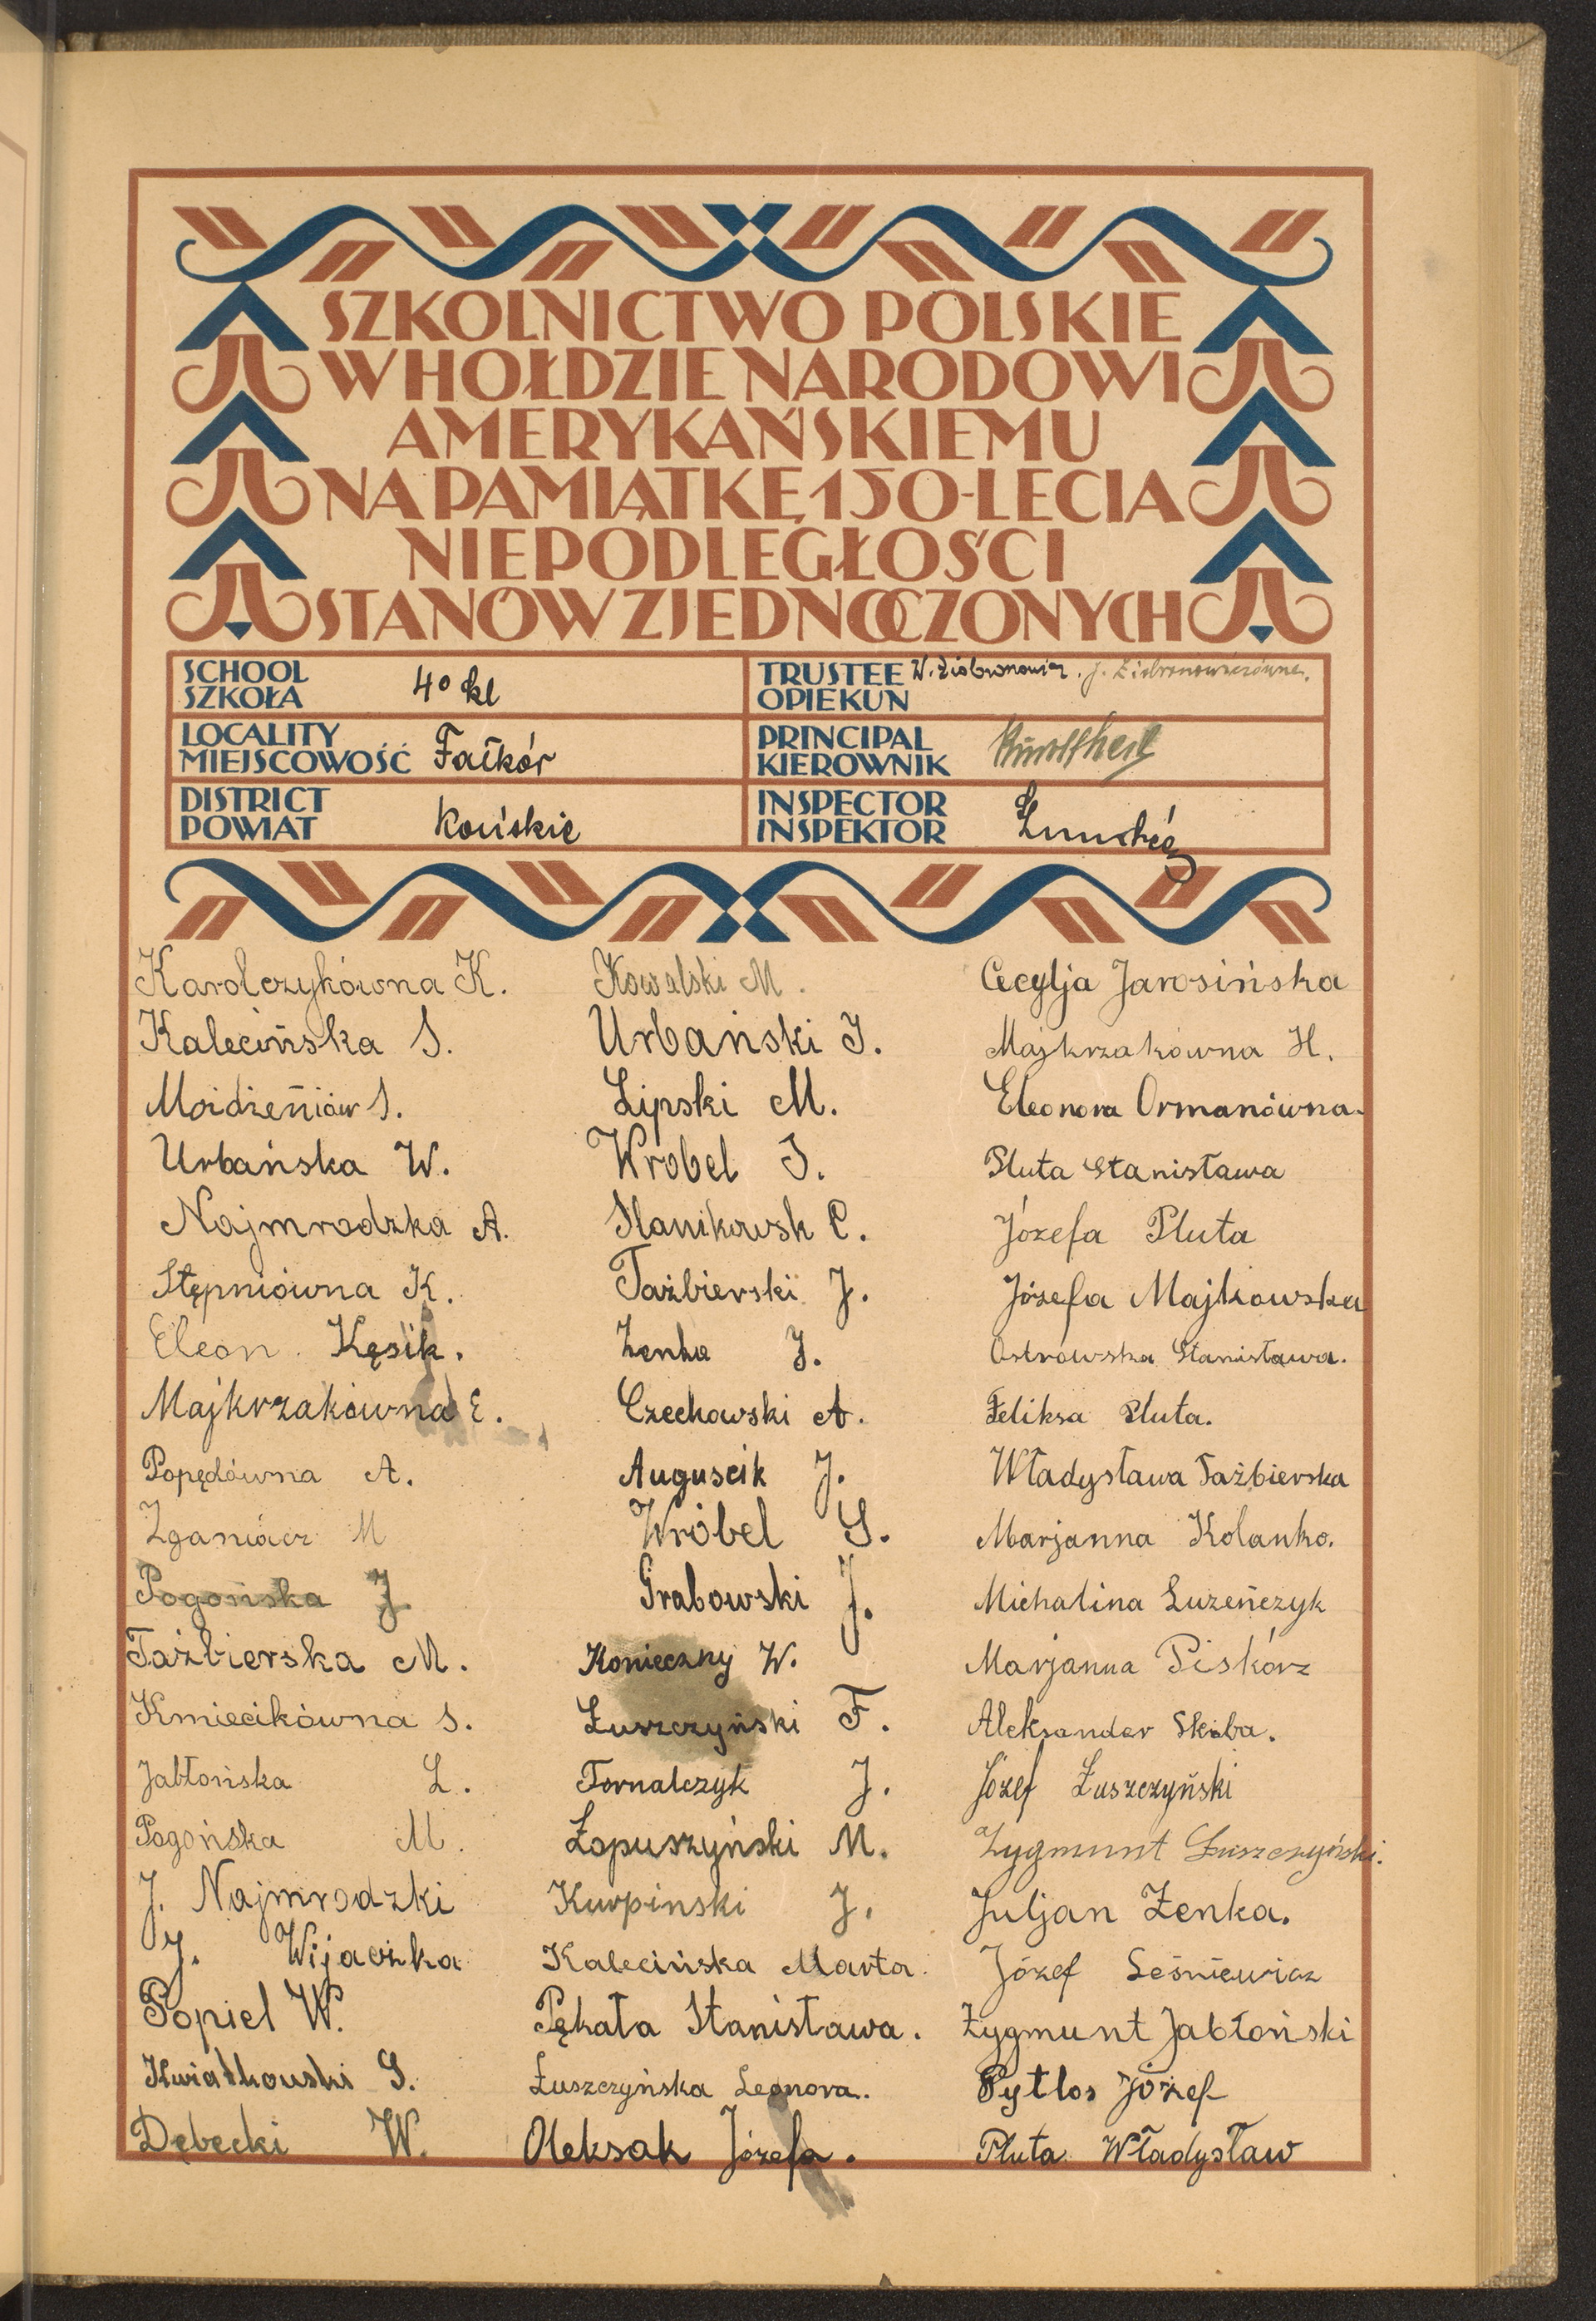 SZKOLNICTWO POLSKIE
W HOŁDZIE NARODOWI
AMERYKAŃSKIEMU
NA PAMIĄTKĘ 150-LECIA
NIEPODLEGŁOŚCI
STANÓW ZJEDNOCZONYCH
SCHOOL
SZKOŁA
4º kl
TRUSTEE
OPIEKUN
LOCALITY
MIEJSCOWOŚĆ
Fałków
PRINCIPAL
KIEROWNIK
DISTRICT
POWIAT
Końskie
INSPECTOR
INSPEKTOR
Karolczykówna K.
Kalecińska S.
Moidzeniów S.
Urbańska W.
Najmrodzka A.
Stępniówna K.
Eleon. Kęsik.
Majkrzakówna E.
Popędówna A.
M
Pogońska J
Taźbierska M.
Kmiecikówna S.
Jabłońska L.
Pogońska M.
J. Najmrodzki
J. Wijaczka
Popiel W.
Kwiatkowski S.
Dębecki W.
Kowalski M.
Urbański J.
Lipski M.
Wrobel J.
Stanikowsk C.
Taźbierski J.
Zenka J.
Czechowski A.
Auguscik J.
Wróbel S.
Grabowski J.
Konieczny W.
Łuszczyński F.
Tornalczyk J.
Łopuszyński M.
Kurpinski J.
Kalecińska Marta.
Pękała Stanisława.
Łuszczyńska Leonora.
Oleksak Józefa.
Cecylja Jarosińska
Majkrzakówna H.
Eleonora Ormanówna.
Pluta Stanisława
Józefa Pluta
Józefa Majkowska
Ostrowska Stanisława.
Feliksa Pluta.
Władysława Taźbierska
Marjanna Kolanko.
Michalina Luzeńczyk
Marjanna Piskórz
Aleksander Skiba.
Józef Łuszczyński
Zygmunt Łuszczyński.
Juljan Zenka.
Józef Leśniewicz
Zygmunt Jabłoński
Pytlos Józef
Pluta Władysław